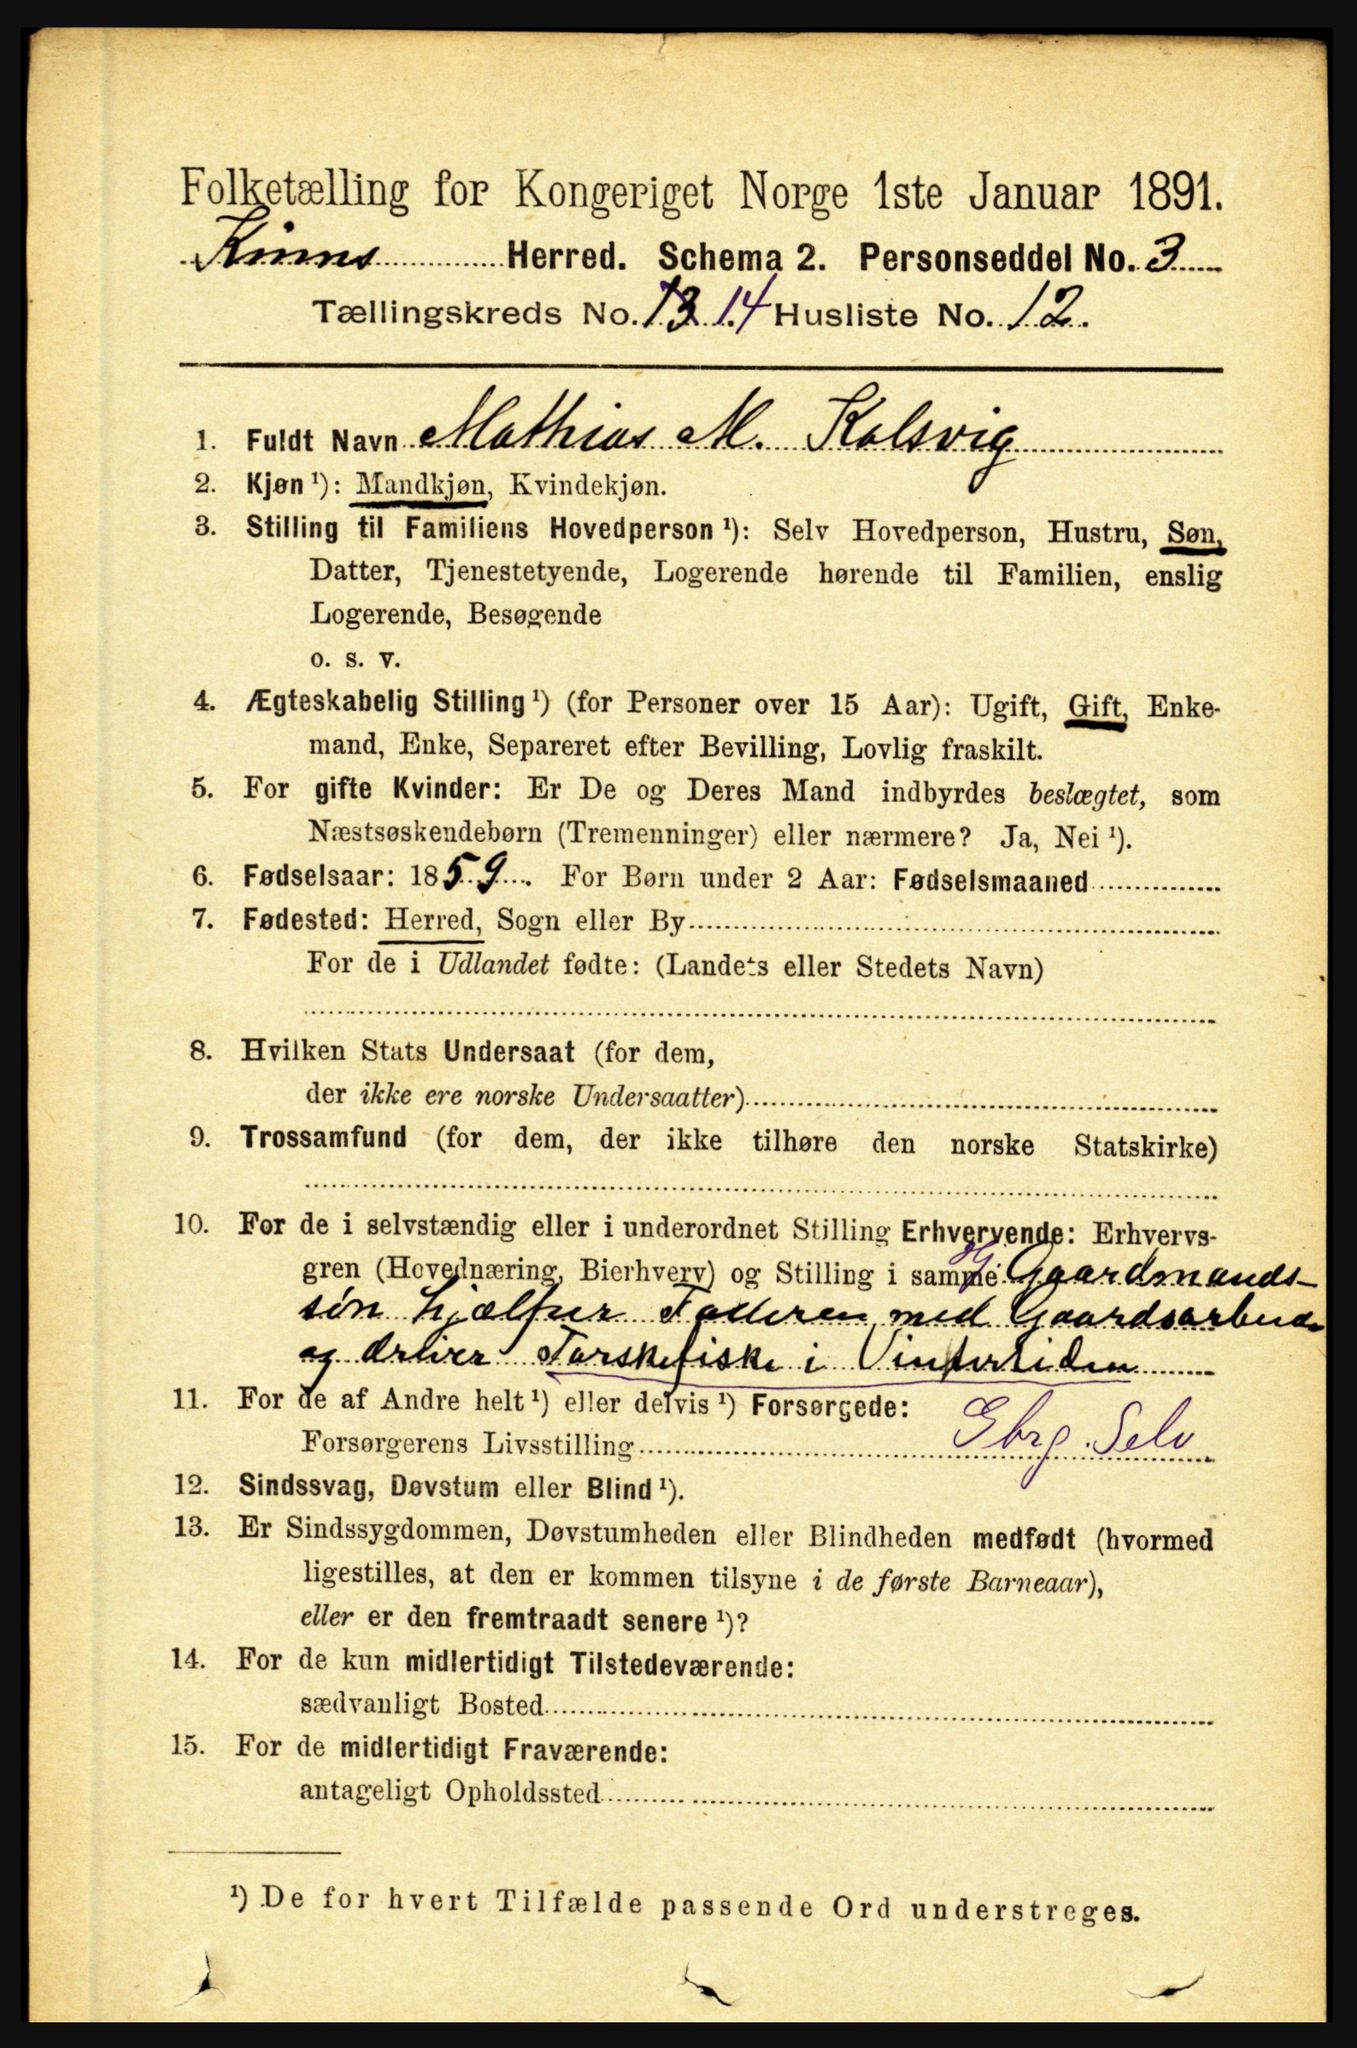 Folketælling for Kongeriget Norge 1ste Januar 1891.
Kinns Herred. Schema 2. Personseddel No. 3
Tællingskreds No. 13 14 Husliste No. 12.
1. Fuldt Navn Mathias M. Kalsvig
2. Kjøn ¹): Mandkjøn, Kvindekjøn.
3. Stilling til Familiens Hovedperson ¹): Selv Hovedperson, Hustru, Søn,
Datter, Tjenestetyende, Logerende hørende til Familien, enslig
Logerende, Besøgende
o. s. v.
4. Ægteskabelig Stilling ¹) (for Personer over 15 Aar): Ugift, Gift, Enke-
mand, Enke, Separeret efter Bevilling, Lovlig fraskilt.
5. For gifte Kvinder: Er De og Deres Mand indbyrdes beslægtet, som
Næstsøskendebørn (Tremenninger) eller nærmere? Ja, Nei ¹).
6. Fødselsaar: 1859. For Børn under 2 Aar: Fødselsmaaned
7. Fødested: Herred, Sogn eller By
For de i Udlandet fødte: (Landets eller Stedets Navn)
8. Hvilken Stats Undersaat (for dem,
der ikke ere norske Undersaatter)
9. Trossamfund (for dem, der ikke tilhøre den norske Statskirke)
10. For de i selvstændig eller i underordnet Stilling Erhvervende: Erhvervs-
gren (Hovednæring, Bierhverv) og Stilling i samme Gaardmands-
søn hjælper Faderen med Gaardsarbeide
og driver Torskefiske i Vintertiden
11. For de af Andre helt ¹) eller delvis ¹) Forsørgede:
Forsørgerens Livsstilling Gbrg. Selv
12. Sindssvag, Døvstum eller Blind ¹).
13. Er Sindssygdommen, Døvstumheden eller Blindheden medfødt (hvormed
ligestilles, at den er kommen tilsyne i de første Barneaar),
eller er den fremtraadt senere ¹)?
14. For de kun midlertidigt Tilstedeværende:
sædvanligt Bosted
15. For de midlertidigt Fraværende:
antageligt Opholdssted
¹) De for hvert Tilfælde passende Ord understreges.